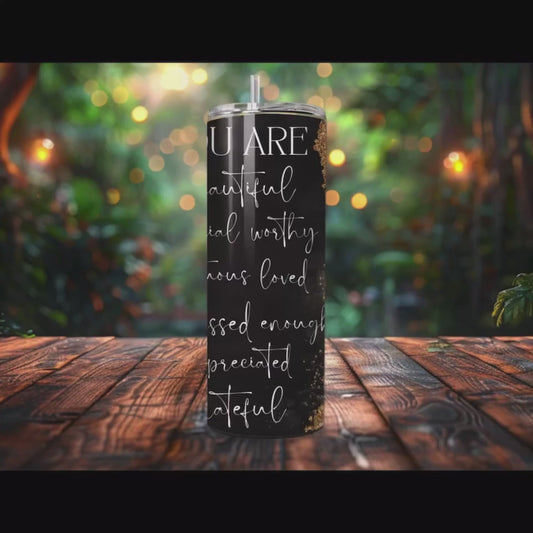 U ARE
autiful
ial worthy
nous loved
ssed enough
preciated
ateful